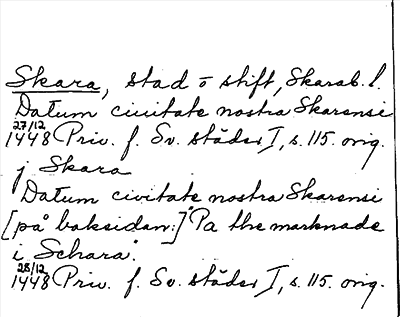 Skara, stad o stift, Skarab. l.
Datum civitate nostra Skarensi
27/12 1448 Priv. f. Sv. städer I, s. 115. orig.
j Skara
Datum civitate nostra Skarensi
[på baksidan:] "Pa the marknade
i Schara".
28/12 1448 Priv. f. Sv. städer I, s. 115. orig.